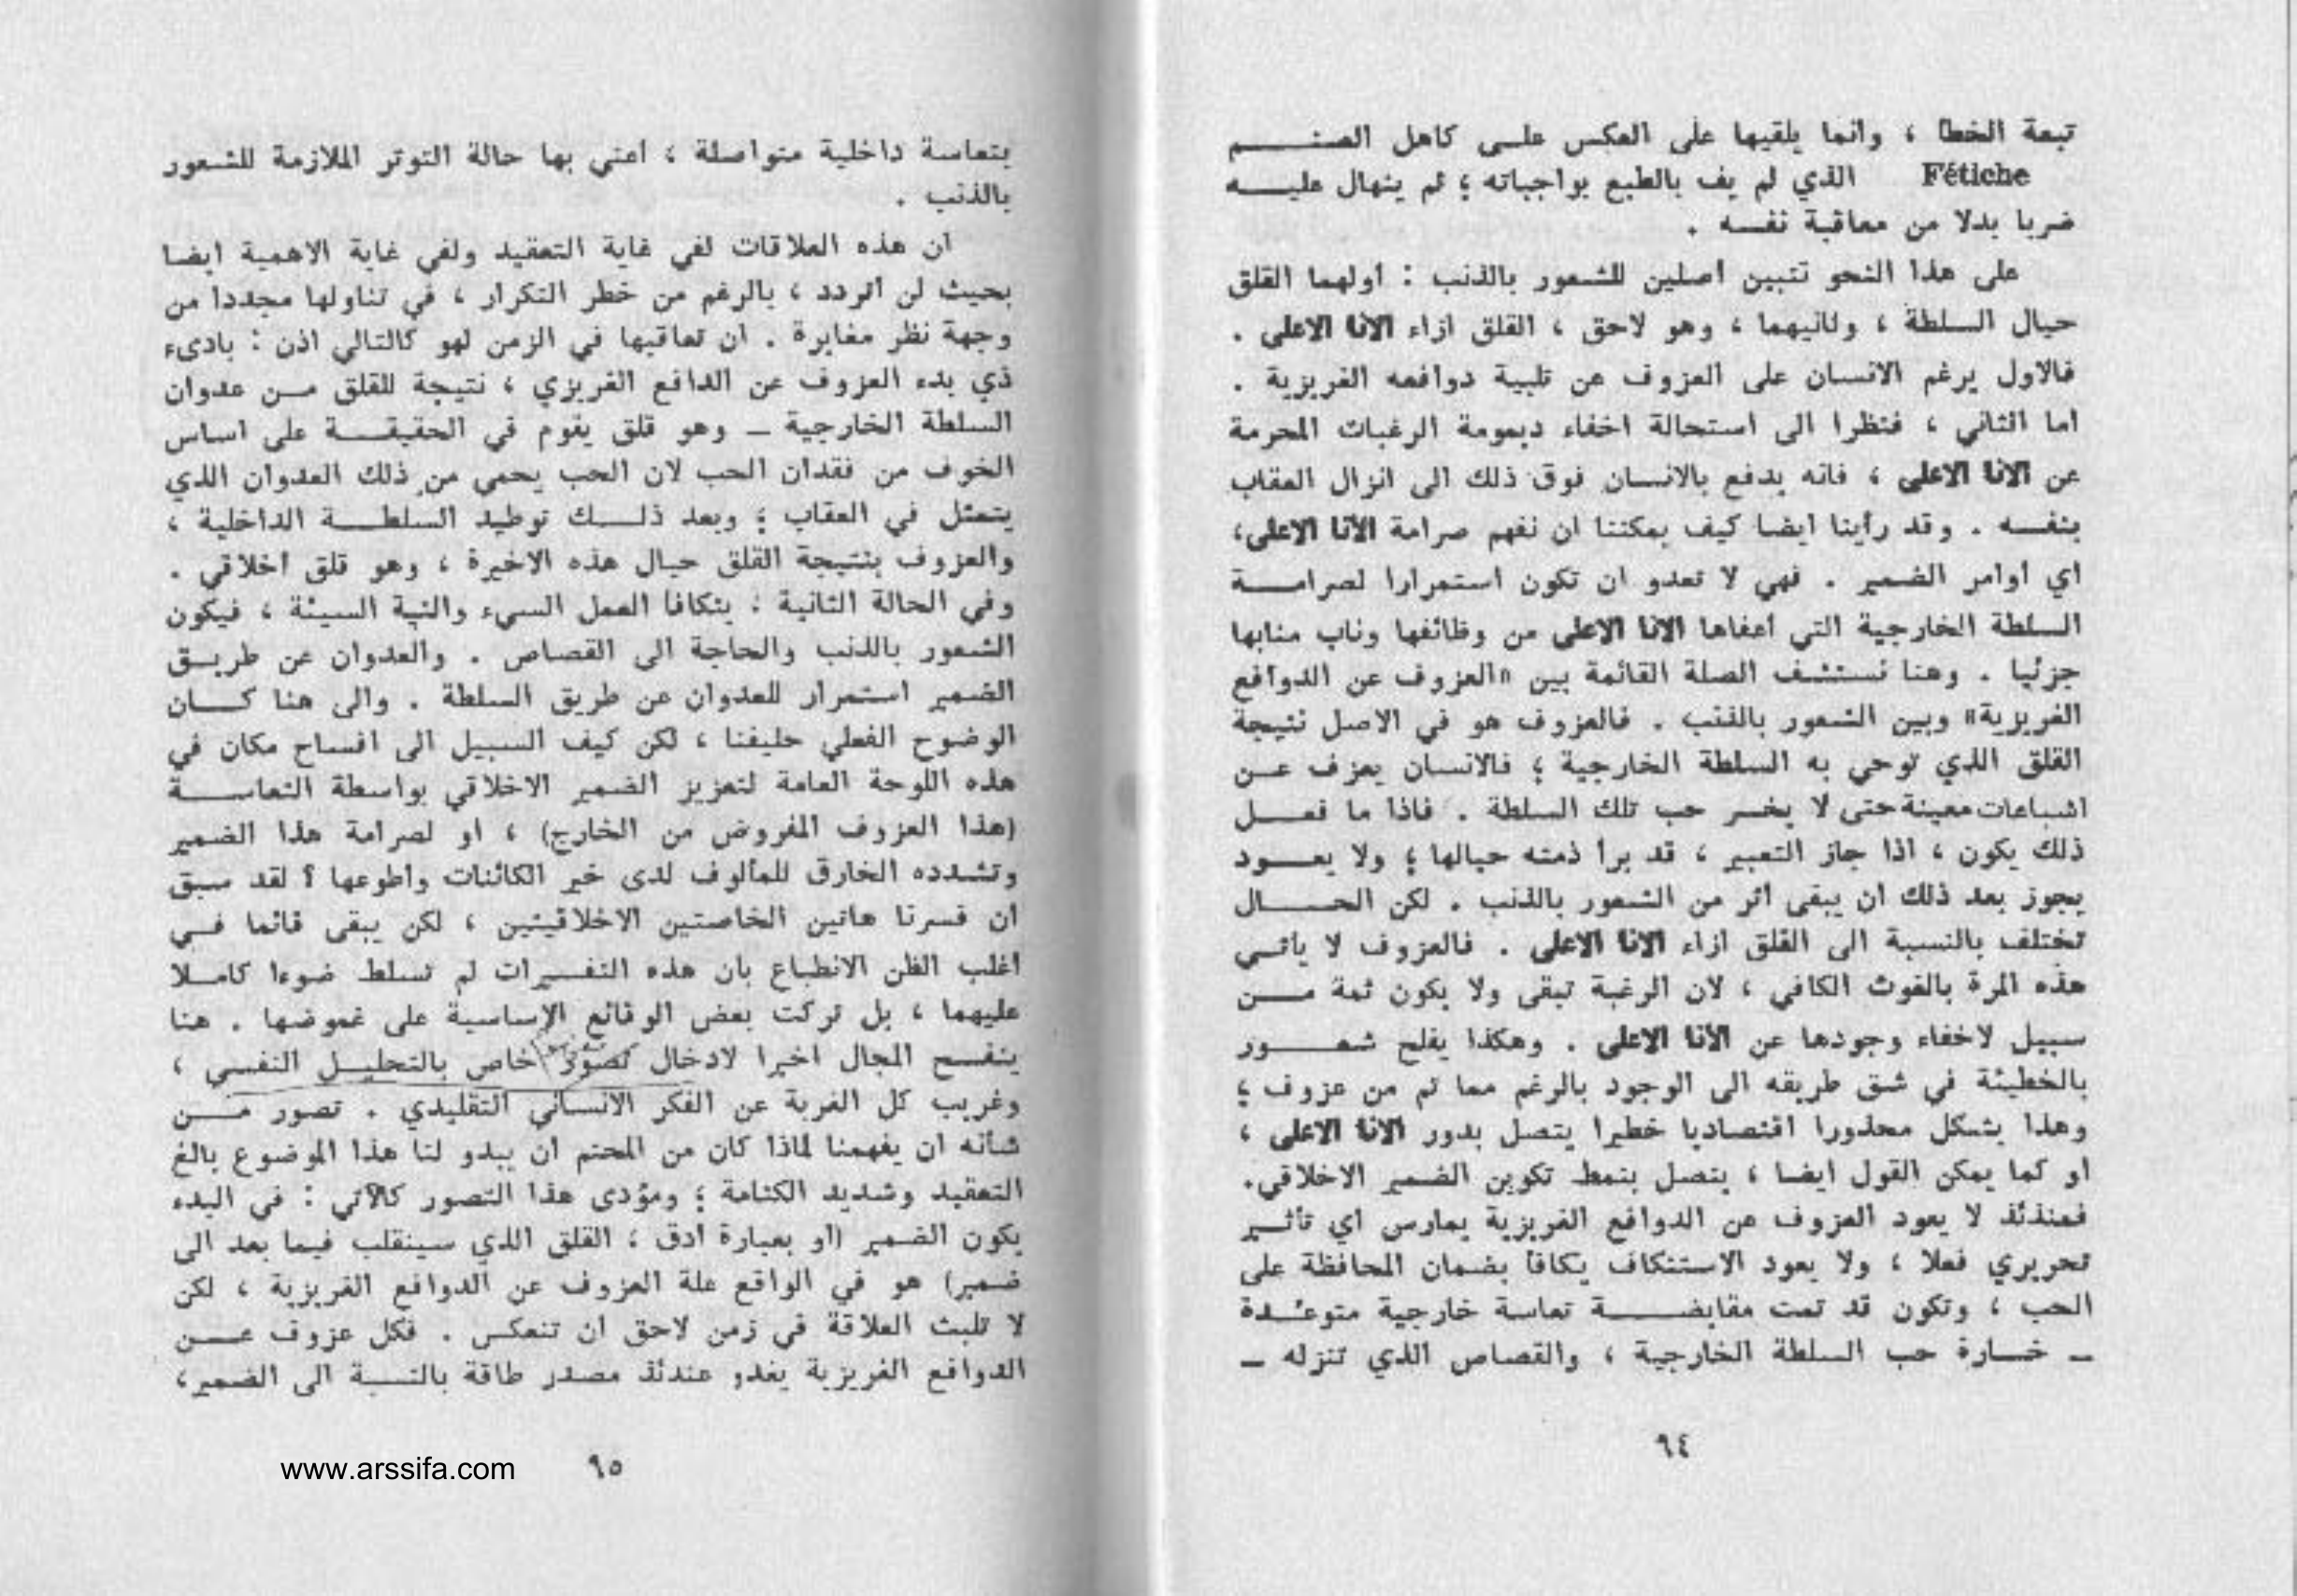 تبعة الخطأ ، وانما يلقيها على العكس على كاهل الصنم
Fétiche الذي لم يف بالطبع بواجباته ؛ ثم ينهال عليه
ضربا بدلا من معاقبة نفسه .
على هذا النحو نتبين اصلين للشعور بالذنب : اولهما القلق
حيال السلطة ، وثانيهما ، وهو لاحق ، القلق ازاء الانا الاعلى .
فالاول يرغم الانسان على العزوف عن تلبية دوافعه الغريزية .
اما الثاني ، فنظرا الى استحالة اخفاء ديمومة الرغبات المحرمة
عن الانا الاعلى ، فانه يدفع بالانسان فوق ذلك الى انزال العقاب
بنفسه . وقد رأينا ايضا كيف يمكننا ان نفهم صرامة الانا الاعلى،
اي اوامر الضمير . فهي لا تعدو ان تكون استمرارا لصرامة
السلطة الخارجية التي اعفاها الانا الاعلى من وظائفها وناب منابها
جزئيا . وهنا نستشف الصلة القائمة بين «العزوف عن الدوافع
الغريزية» وبين الشعور بالذنب . فالعزوف هو في الاصل نتيجة
القلق الذي توحي به السلطة الخارجية ؛ فالانسان يعزف عن
اشباعات معينة حتى لا يخسر حب تلك السلطة . فاذا ما فعل
ذلك يكون ، اذا جاز التعبير ، قد برأ ذمته حيالها ؛ ولا يعود
يجوز بعد ذلك ان يبقى اثر من الشعور بالذنب . لكن الحال
تختلف بالنسبة الى القلق ازاء الانا الاعلى . فالعزوف لا يأتي
هذه المرة بالغوث الكافي ، لان الرغبة تبقى ولا يكون ثمة من
سبيل لاخفاء وجودها عن الانا الاعلى . وهكذا يفلح شعور
بالخطيئة في شق طريقه الى الوجود بالرغم مما تم من عزوف ؛
وهذا يشكل محذورا اقتصاديا خطيرا يتصل بدور الانا الاعلى ،
او كما يمكن القول ايضا ، يتصل بنمط تكوين الضمير الاخلاقي.
فعندئذ لا يعود العزوف عن الدوافع الغريزية يمارس اي تأثير
تحريري فعلا ، ولا يعود الاستنكاف يكافأ بضمان المحافظة على
الحب ، وتكون قد تمت مقايضة تعاسة خارجية متوعدة
– خسارة حب السلطة الخارجية ، والقصاص الذي تنزله –
٦٤
بتعاسة داخلية متواصلة ، اعني بها حالة التوتر الملازمة للشعور
بالذنب .
ان هذه العلاقات لفي غاية التعقيد ولفي غاية الاهمية ايضا
بحيث لن اتردد ، بالرغم من خطر التكرار ، في تناولها مجددا من
وجهة نظر مغايرة . ان تعاقبها في الزمن لهو كالتالي اذن : بادىء
ذي بدء العزوف عن الدافع الغريزي ، نتيجة للقلق من عدوان
السلطة الخارجية – وهو قلق يقوم في الحقيقة على اساس
الخوف من فقدان الحب لان الحب يحمي من ذلك العدوان الذي
يتمثل في العقاب ؛ وبعد ذلك توطيد السلطة الداخلية ،
والعزوف بنتيجة القلق حيال هذه الاخيرة ، وهو قلق اخلاقي .
وفي الحالة الثانية : يتكافأ العمل السيء والنية السيئة ، فيكون
الشعور بالذنب والحاجة الى القصاص . والعدوان عن طريق
الضمير استمرار للعدوان عن طريق السلطة . والى هنا كان
الوضوح الفعلي حليفنا ، لكن كيف السبيل الى افساح مكان في
هذه اللوحة العامة لتعزيز الضمير الاخلاقي بواسطة التعاسة
(هذا العزوف المفروض من الخارج) ، او لصرامة هذا الضمير
وتشدده الخارق للمألوف لدى خير الكائنات واطوعها ؟ لقد سبق
ان فسرنا هاتين الخاصتين الاخلاقيتين ، لكن يبقى قائما في
اغلب الظن الانطباع بأن هذه التفسيرات لم تسلط ضوءا كاملا
عليهما ، بل تركت بعض الوقائع الاساسية على غموضها . هنا
ينفسح المجال اخيرا لادخال تصور خاص بالتحليل النفسي ،
وغريب كل الغربة عن الفكر الانساني التقليدي . تصور من
شأنه ان يفهمنا لماذا كان من المحتم ان يبدو لنا هذا الموضوع بالغ
التعقيد وشديد الكتامة ؛ ومؤدى هذا التصور كالآتي : في البدء
يكون الضمير (او بعبارة ادق ، القلق الذي سينقلب فيما بعد الى
ضمير) هو في الواقع علة العزوف عن الدوافع الغريزية ، لكن
لا تلبث العلاقة في زمن لاحق ان تنعكس . فكل عزوف عن
الدوافع الغريزية يغدو عندئذ مصدر طاقة بالنسبة الى الضمير،
٦٥
www.arssifa.com